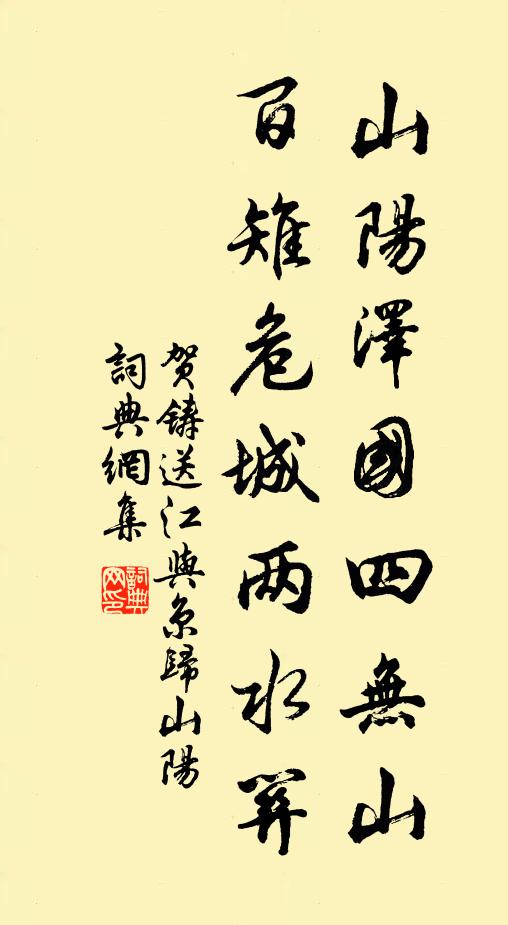 山陽澤國四無山
百雉危城两水關
賀鑄送江與京歸山陽
詞典網集
詞典网印